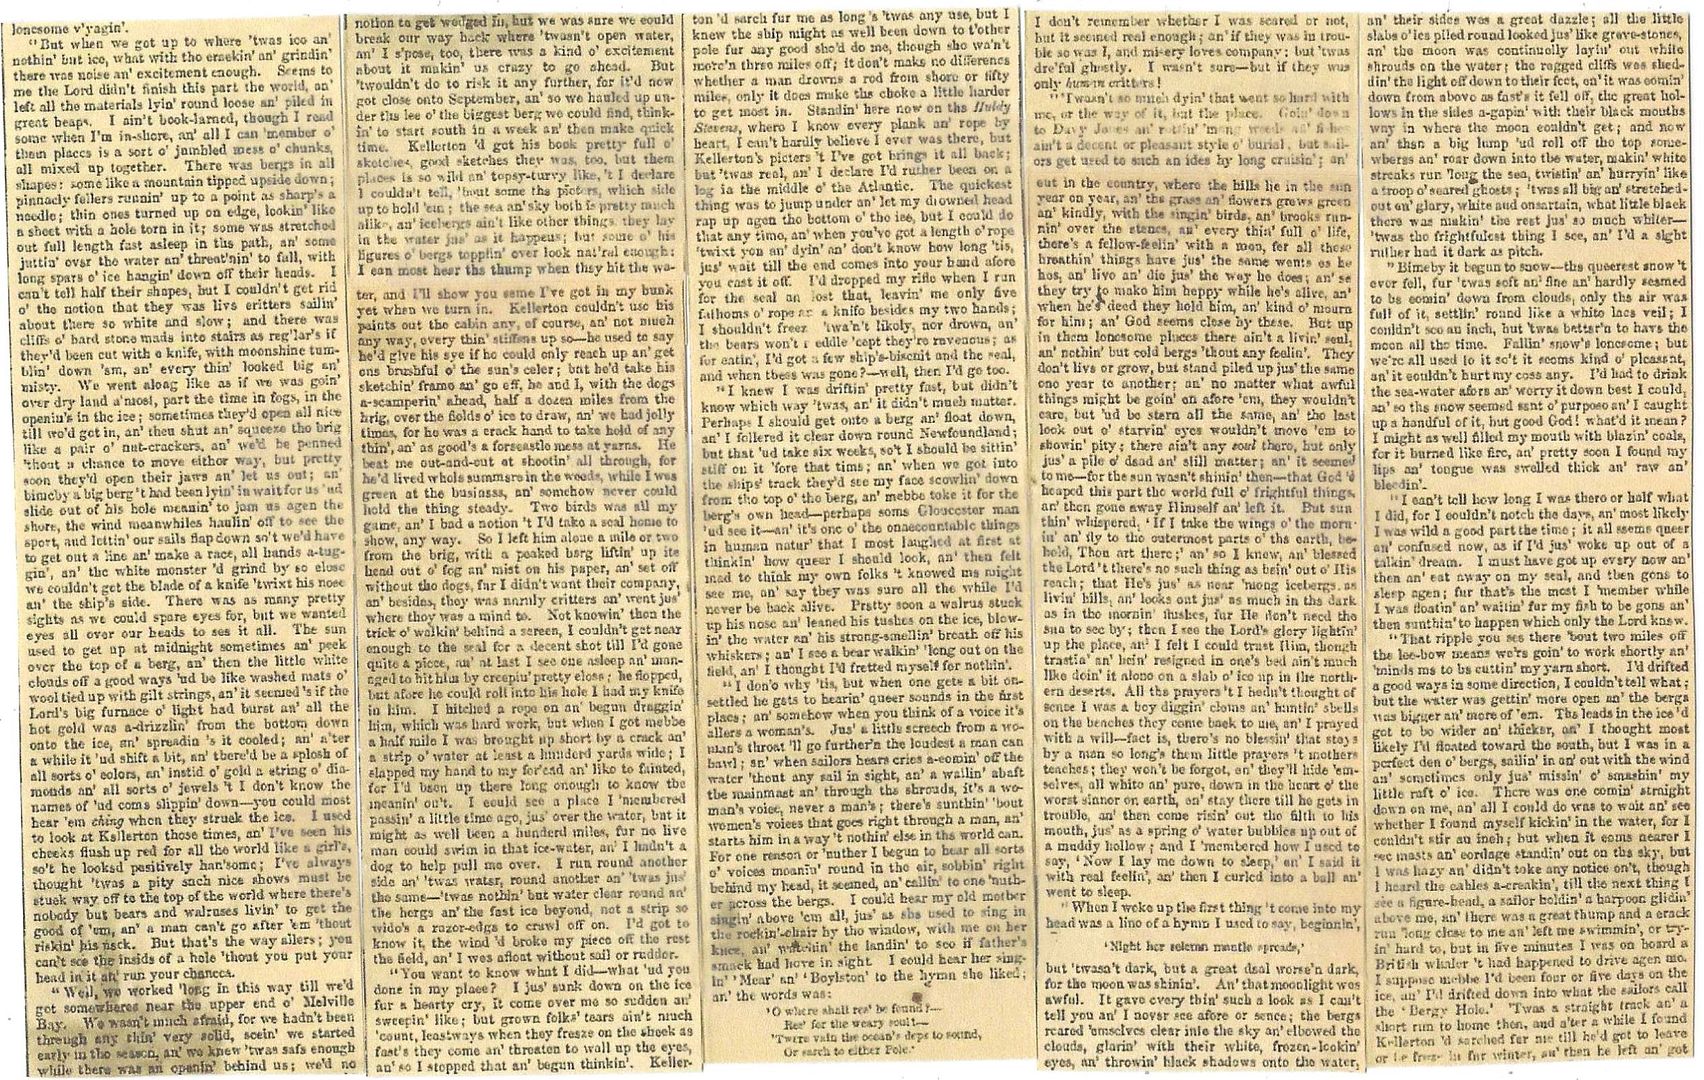 lonesome v'yagin'.
"But when we got up to where 'twas ice an'
nothin' but ice, what with the crackin' an' grindin'
there was noise an' excitement enough. Seems to
me the Lord didn't finish this part the world, an'
left all the materials lyin' round loose an' piled in
great heaps. I ain't book-larned, though I read
some when I'm in-shore, an' all I can 'member o'
them places is a sort o' jumbled mess o' chunks,
all mixed up together. There was bergs in all
shapes: some like a mountain tipped upside down;
pinnacly fellers runnin' up to a point as sharp's a
needle; thin ones turned up on edge, lookin' like
a sheet with a hole torn in it; some was stretched
out full length fast asleep in the path, an' some
juttin' over the water an' threat'nin' to fall, with
long spars o' ice hangin' down off their heads. I
can't tell half their shapes, but I couldn't get rid
o' the notion that they was live critters sailin'
about there so white and slow; and there was
cliffs o' hard stone made into stairs as reg'lar's if
they'd been cut with a knife, with moonshine tum-
blin' down 'em, an' every thin' looked big an'
misty. We went along like as if we was goin'
over dry land a'most, part the time in fogs, in the
openin's in the ice; sometimes they'd open all nice
till we'd get in, an' then shut an' squeeze the brig
like a pair o' nut-crackers, an' we'd be penned
'thout a chance to move either way, but pretty
soon they'd open their jaws an' let us out; an'
bimeby a big berg 't had been lyin' in wait for us 'ud
slide out of his hole meanin' to jam us agen the
shore, the wind meanwhiles haulin' off to see the
sport, and lettin' our sails flap down so't we'd have
to get out a line an' make a race, all hands a-tug-
gin', an' the white monster 'd grind by so close
we couldn't get the blade of a knife 'twixt his nose
an' the ship's side. There was as many pretty
sights as we could spare eyes for, but we wanted
eyes all over our heads to see it all. The sun
used to get up at midnight sometimes an' peek
over the top of a berg, an' then the little white
clouds off a good ways 'ud be like washed mats o'
wool tied up with gilt strings, an' it seemed 's if the
Lord's big furnace o' light had burst an' all the
hot gold was a-drizzlin' from the bottom down
onto the ice, an' spreadin 's it cooled; an' a'ter
a while it 'ud shift a bit, an' there'd be a splosh of
all sorts o' colors, an' instid o' gold a string o' dia-
monds an' all sorts o' jewels 't I don't know the
names of 'ud come slippin' down—you could most
hear 'em ching when they struck the ice. I used
to look at Kellerton those times, an' I've seen his
cheeks flush up red for all the world like a girl's,
so't he looked positively han'some; I've always
thought 'twas a pity such nice shows must be
stuck way off to the top of the world where there's
nobody but bears and walruses livin' to get the
good of 'em, an' a man can't go after 'em 'thout
riskin' his neck. But that's the way allers; you
can't see the insids of a hole 'thout you put your
head in it an' run your chances.
"Well, we worked 'long in this way till we'd
got somewheres near the upper end o' Melville
Bay. We wasn't much afraid, for we hadn't been
through any thin' very solid, seein' we started
early in the season, an' we knew 'twas safe enough
while there was an openin' behind us; we'd no
notion to get wedged in, but we was sure we could
break our way back where 'twasn't open water,
an' I s'pose, too, there was a kind o' excitement
about it makin' us crazy to go ahead. But
'twouldn't do to risk it any further, for it'd now
got close onto September, an' so we hauled up un-
der the lee o' the biggest berg we could find, think-
in' to start south in a week an' then make quick
time. Kellerton 'd got his book pretty full o'
sketches, good sketches they was, too, but them
places is so wild an' topsy-turvy like, 't I declare
I couldn't tell, 'bout some the picters, which side
up to hold 'em; the sea an' sky both is pretty much
alike, an' icebergs ain't like other things, they lay
in the water jus' as it happens; but some o' his
figures o' bergs topplin' over look nat'ral enough:
I can most hear the thump when they hit the wa-
ter, and I'll show you some I've got in my bunk
yet when we turn in. Kellerton couldn't use his
paints out the cabin any, of course, an' not much
any way, every thin' stiffens up so—he used to say
he'd give his eye if he could only reach up an' get
one brushful o' the sun's color; but he'd take his
sketchin' frame an' go off, he and I, with the dogs
a-scamperin' ahead, half a dozen miles from the
brig, over the fields o' ice to draw, an' we had jolly
times, for he was a crack hand to take hold of any
thin', an' as good's a forecastle mess at yarns. He
beat me out-and-out at shootin' all through, for
he'd lived whole summers in the woods, while I was
green at the business, an' somehow never could
hold the thing steady. Two birds was all my
game, an' I had a notion 't I'd take a seal home to
show, any way. So I left him alone a mile or two
from the brig, with a peaked berg liftin' up its
head out o' fog an' mist on his paper, an' set off
without the dogs, fur I didn't want their company,
an' besides, they was unruly critters an' went jus'
where they was a mind to. Not knowin' then the
trick o' walkin' behind a screen, I couldn't get near
enough to the seal for a decent shot till I'd gone
quite a piece, an' at last I see one asleep an' man-
aged to hit him by creepin' pretty close; he flopped,
but afore he could roll into his hole I had my knife
in him. I hitched a rope on an' begun draggin'
him, which was hard work, but when I got mebbe
a half mile I was brought up short by a crack an'
a strip o' water at least a hunderd yards wide; I
slapped my hand to my for'ead an' like to fainted,
for I'd been up there long enough to know the
meanin' on't. I could see a place I 'membered
passin' a little time ago, jus' over the water, but it
might as well been a hunderd miles, fur no live
man could swim in that ice-water, an' I hadn't a
dog to help pull me over. I run round another
side an' 'twas water, round another an' 'twas jus'
the same—'twas nothin' but water clear round an'
the bergs an' the fast ice beyond, not a strip so
wide's a razor-edge to crawl off on. I'd got to
know it, the wind 'd broke my piece off the rest
the field, an' I was afloat without sail or rudder.
"You want to know what I did—what 'ud you
done in my place? I jus' sunk down on the ice
fur a hearty cry, it come over me so sudden an'
sweepin' like; but grown folks' tears ain't much
'count, leastways when they freeze on the cheek as
fast's they come an' threaten to wall up the eyes,
an' so I stopped that an' begun thinkin'. Keller-
ton 'd sarch fur me as long 's 'twas any use, but I
knew the ship might as well been down to t'other
pole fur any good she'd do me, though she wa'n't
more'n three miles off; it don't make no difference
whether a man drowns a rod from shore or fifty
miles, only it does make the choke a little harder
to get most in. Standin' here now on the Huldy
Stevens, where I know every plank an' rope by
heart, I can't hardly believe I ever was there, but
Kellerton's picters 't I've got brings it all back;
but 'twas real, an' I declare I'd ruther been on a
log in the middle o' the Atlantic. The quickest
thing was to jump under an' let my drowned head
rap up agen the bottom o' the ice, but I could do
that any time, an' when you've got a length o' rope
'twixt you an' dyin' an' don't know how long 'tis,
jus' wait till the end comes into your hand afore
you cast it off. I'd dropped my rifle when I run
for the seal an lost that, leavin' me only five
fathoms o' rope an' a knife besides my two hands;
I shouldn't freez 'twa'n't likely, nor drown, an'
the bears won't eddle 'cept they're ravenous; as
for eatin', I'd got a few ship's-biscuit and the seal,
and when these was gone?—well, then I'd go too.
"I knew I was driftin' pretty fast, but didn't
know which way 'twas, an' it didn't much matter.
Perhaps I should get onto a berg an' float down,
an' I follered it clear down round Newfoundland;
but that 'ud take six weeks, so't I should be sittin'
stiff on it 'fore that time; an' when we got into
the ships' track they'd see my face scowlin' down
from the top o' the berg, an' mebbe toke it for the
berg's own head—perhaps some Gloucester man
'ud see it—an' it's one o' the onaccountable things
in human natur' that I most laughed at first at
thinkin' how queer I should look, an' then felt
mad to think my own folks 't knowed me might
see me, an' say they was sure all the while I'd
never be back alive. Pretty soon a walrus stuck
up his nose an' leaned his tushes on the ice, blow-
in' the water an' his strong-smellin' breath off his
whiskers; an' I see a bear walkin' 'long out on the
field, an' I thought I'd fretted myself for nothin'.
"I don'o why 'tis, but when one gets a bit on-
settled he gets to hearin' queer sounds in the first
place; an' somehow when you think of a voice it's
allers a woman's. Jus' a little screech from a wo-
man's throat 'll go further'n the loudest a man can
bawl; an' when sailors hears cries a-comin' off the
water 'thout any sail in sight, an' a wailin' abaft
the mainmast an' through the shrouds, it's a wo-
man's voice, never a man's; there's sunthin' 'bout
women's voices that goes right through a man, an'
starts him in a way 't nothin' else in the world can.
For one reason or 'nuther I begun to hear all sorts
o' voices moanin' round in the air, sobbin' right
behind my head, it seemed, an' callin' to one 'nuth-
er across the bergs. I could hear my old mother
singin' above 'em all, jus' as she used to sing in
the rockin'-chair by the window, with me on her
knee, an' watchin' the landin' to see if father's
smack had hove in sight. I could hear her sing-
in' 'Mear' an' 'Boylston' to the hymn she liked;
an' the words was:
'O where shall res' be found?—
Res' for the weary soul!—
'Twere vain the ocean's deps to sound,
Or sarch to either Pole.'
I don't remember whether I was scared or not,
but it seemed real enough; an' if they was in trou-
ble so was I, and misery loves company; but 'twas
dre'ful ghostly. I wasn't sure—but if they was
only human critters!
"'Twasn't so much dyin' that went so hard with
me, or the way of it, but the place. Goin' down
to Davy Jones an' rottin' 'mong weeds an' fishes
ain't a decent or pleasant style o' burial, but sail-
ors get used to such an idee by long cruisin'; an'
out in the country, where the hills lie in the sun
year on year, an' the grass an' flowers grows green
an' kindly, with the singin' birds, an' brooks run-
nin' over the stones, an' every thin' full o' life,
there's a fellow-feelin' with a man, fer all these
breathin' things have jus' the same wants es he
hes, an' live an' die jus' the way he does; an' so
they try to make him heppy while he's alive, an'
when he's deed they hold him, an' kind o' mourn
for him; an' God seems close by these. But up
in them lonesome places there ain't a livin' soul,
an' nothin' but cold bergs 'thout any feelin'. They
don't live or grow, but stand piled up jus' the same
one year to another; an' no matter what awful
things might be goin' on afore 'em, they wouldn't
care, but 'ud be stern all the same, an' the last
look out o' starvin' eyes wouldn't move 'em to
showin' pity; there ain't any soul there, but only
jus' a pile o' dead an' still matter; an' it seemed
to me—for the sun wasn't shinin' then—that God 'd
heaped this part the world full o' frightful things,
an' then gone away Himself an' left it. But sun
thin' whispered, 'If I take the wings o' the morn-
in' an' fly to the outermost parts o' the earth, be-
hold, Thou art there;' an' so I knew, an' blessed
the Lord 't there's no such thing as bein' out o' His
reach; that He's jus' as near 'mong icebergs as
livin' hills, an' looks out jus' as much in the dark
as in the mornin' flushes, fur He don't need the
sun to see by; then I see the Lord's glory lightin'
up the place, an' I felt I could trust Him, though
trustin' an' bein' resigned in one's bed ain't much
like doin' it alone on a slab o' ice up in the north-
ern deserts. All the prayers 't I hedn't thought of
sence I was a boy diggin' cloms an' huntin' shells
on the beaches they come back to me, an' I prayed
with a will—fact is, there's no blessin' that stays
by a man so long's them little prayers 't mothers
teaches; they won't be forgot, an' they'll hide 'em-
selves, all white an' pure, down in the heart o' the
worst sinnor on earth, an' stay there till he gets in
trouble, an' then come risin' out the filth to his
mouth, jus' as a spring o' water bubbles up out of
a muddy hollow; and I 'membered how I used to
say, 'Now I lay me down to sleep,' an' I said it
with real feelin', an' then I curled into a ball an'
went to sleep.
"When I woke up the first thing 't come into my
head was a line of a hymn I used to say, beginnin',
'Night her solemn mantle spreads,'
but 'twasn't dark, but a great deal worse'n dark,
for the moon was shinin'. An' that moonlight was
awful. It gave every thin' such a look as I can't
tell you an' I never see afore or sence; the bergs
reared 'emselves clear into the sky an' elbowed the
clouds, glarin' with their white, frozen-lookin'
eyes, an' throwin' black shadows onto the water,
an' their sides was a great dazzle; all the little
slabs o' ice piled round looked jus' like grave-stones,
an' the moon was continually layin' out white
shrouds on the water; the ragged cliffs was shed-
din' the light off down to their feet, an' it was comin'
down from above as fast's it fell off, the great hol-
lows in the sides a-gapin' with their black mouths
way in where the moon couldn't get; and now
an' then a big lump 'ud roll off the top some-
wheres an' roar down into the water, makin' white
streaks run 'long the sea, twistin' an' hurryin' like
a troop o' scared ghosts; 'twas all big an' stretched-
out an' glary, white and onsartain, what little black
there was makin' the rest jus' so much whiter—
'twas the frightfulest thing I see, an' I'd a sight
ruther had it dark as pitch.
"Bimeby it begun to snow—the queerest snow 't
ever fell, fur 'twas soft an' fine an' hardly seemed
to be comin' down from clouds, only the air was
full of it, settlin' round like a white lace veil; I
couldn't see an inch, but 'twas better'n to have the
moon all the time. Fallin' snow's lonesome; but
we're all used to it so't it seems kind o' pleasant,
an' it couldn't hurt my coss any. I'd had to drink
the sea-water afore an' worry it down best I could,
an' so the snow seemed sent o' purpose an' I caught
up a handful of it, but good God! what'd it mean?
I might as well filled my mouth with blazin' coals,
for it burned like fire, an' pretty soon I found my
lips an' tongue was swelled thick an' raw an'
bleedin'.
"I can't tell how long I was there or half what
I did, for I couldn't notch the days, an' most likely
I was wild a good part the time; it all seems queer
an' confused now, as if I'd jus' woke up out of a
talkin' dream. I must have got up every now an'
then an' eat away on my seal, and then gone to
sleep agen; fur that's the most I 'member while
I was floatin' an' waitin' fur my fish to be gone an'
then sunthin' to happen which only the Lord knew.
"That ripple you see there 'bout two miles off
the lee-bow means we're goin' to work shortly an'
'minds me to be cuttin' my yarn short. I'd drifted
a good ways in some direction, I couldn't tell what;
but the water was gettin' more open an' the bergs
was bigger an' more of 'em. The leads in the ice 'd
got to be wider an' thicker, an' I thought most
likely I'd floated toward the south, but I was in a
perfect den o' bergs, sailin' in an' out with the wind
an' sometimes only jus' missin' o' smashin' my
little raft o' ice. There was one comin' straight
down on me, an' all I could do was to wait an' see
whether I found myself kickin' in the water, for I
couldn't stir an inch; but when it coms nearer I
see masts an' cordage standin' out on the sky, but
I was hazy an' didn't take any notice on't, though
I heard the cables a-creakin', till the next thing I
see a figure-head, a sailor holdin' a harpoon glidin'
above me, an' there was a great thump and a crack
run 'long close to me an' left me swimmin', or try-
in' hard to, but in five minutes I was on board a
British whaler 't had happened to drive agen me.
I suppose mebbe I'd been four or five days on the
ice, an' I'd drifted down into what the sailors call
the 'Bergy Hole.' 'Twas a straight track an' a
short run to home then, and a'ter a while I found
Kellerton 'd sarched fur me till he'd got to leave
or be froze in fur winter, an' then he left an' got